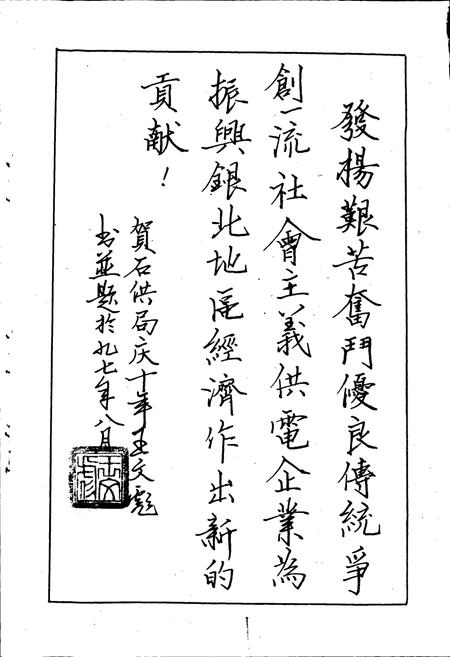 發揚艱苦奮鬥優良傳統爭
創一流社會主義供電企業為
振興銀北地區經濟作出新的
貢献！
賀石供局庆十年王文彪
书並题於九七年八月